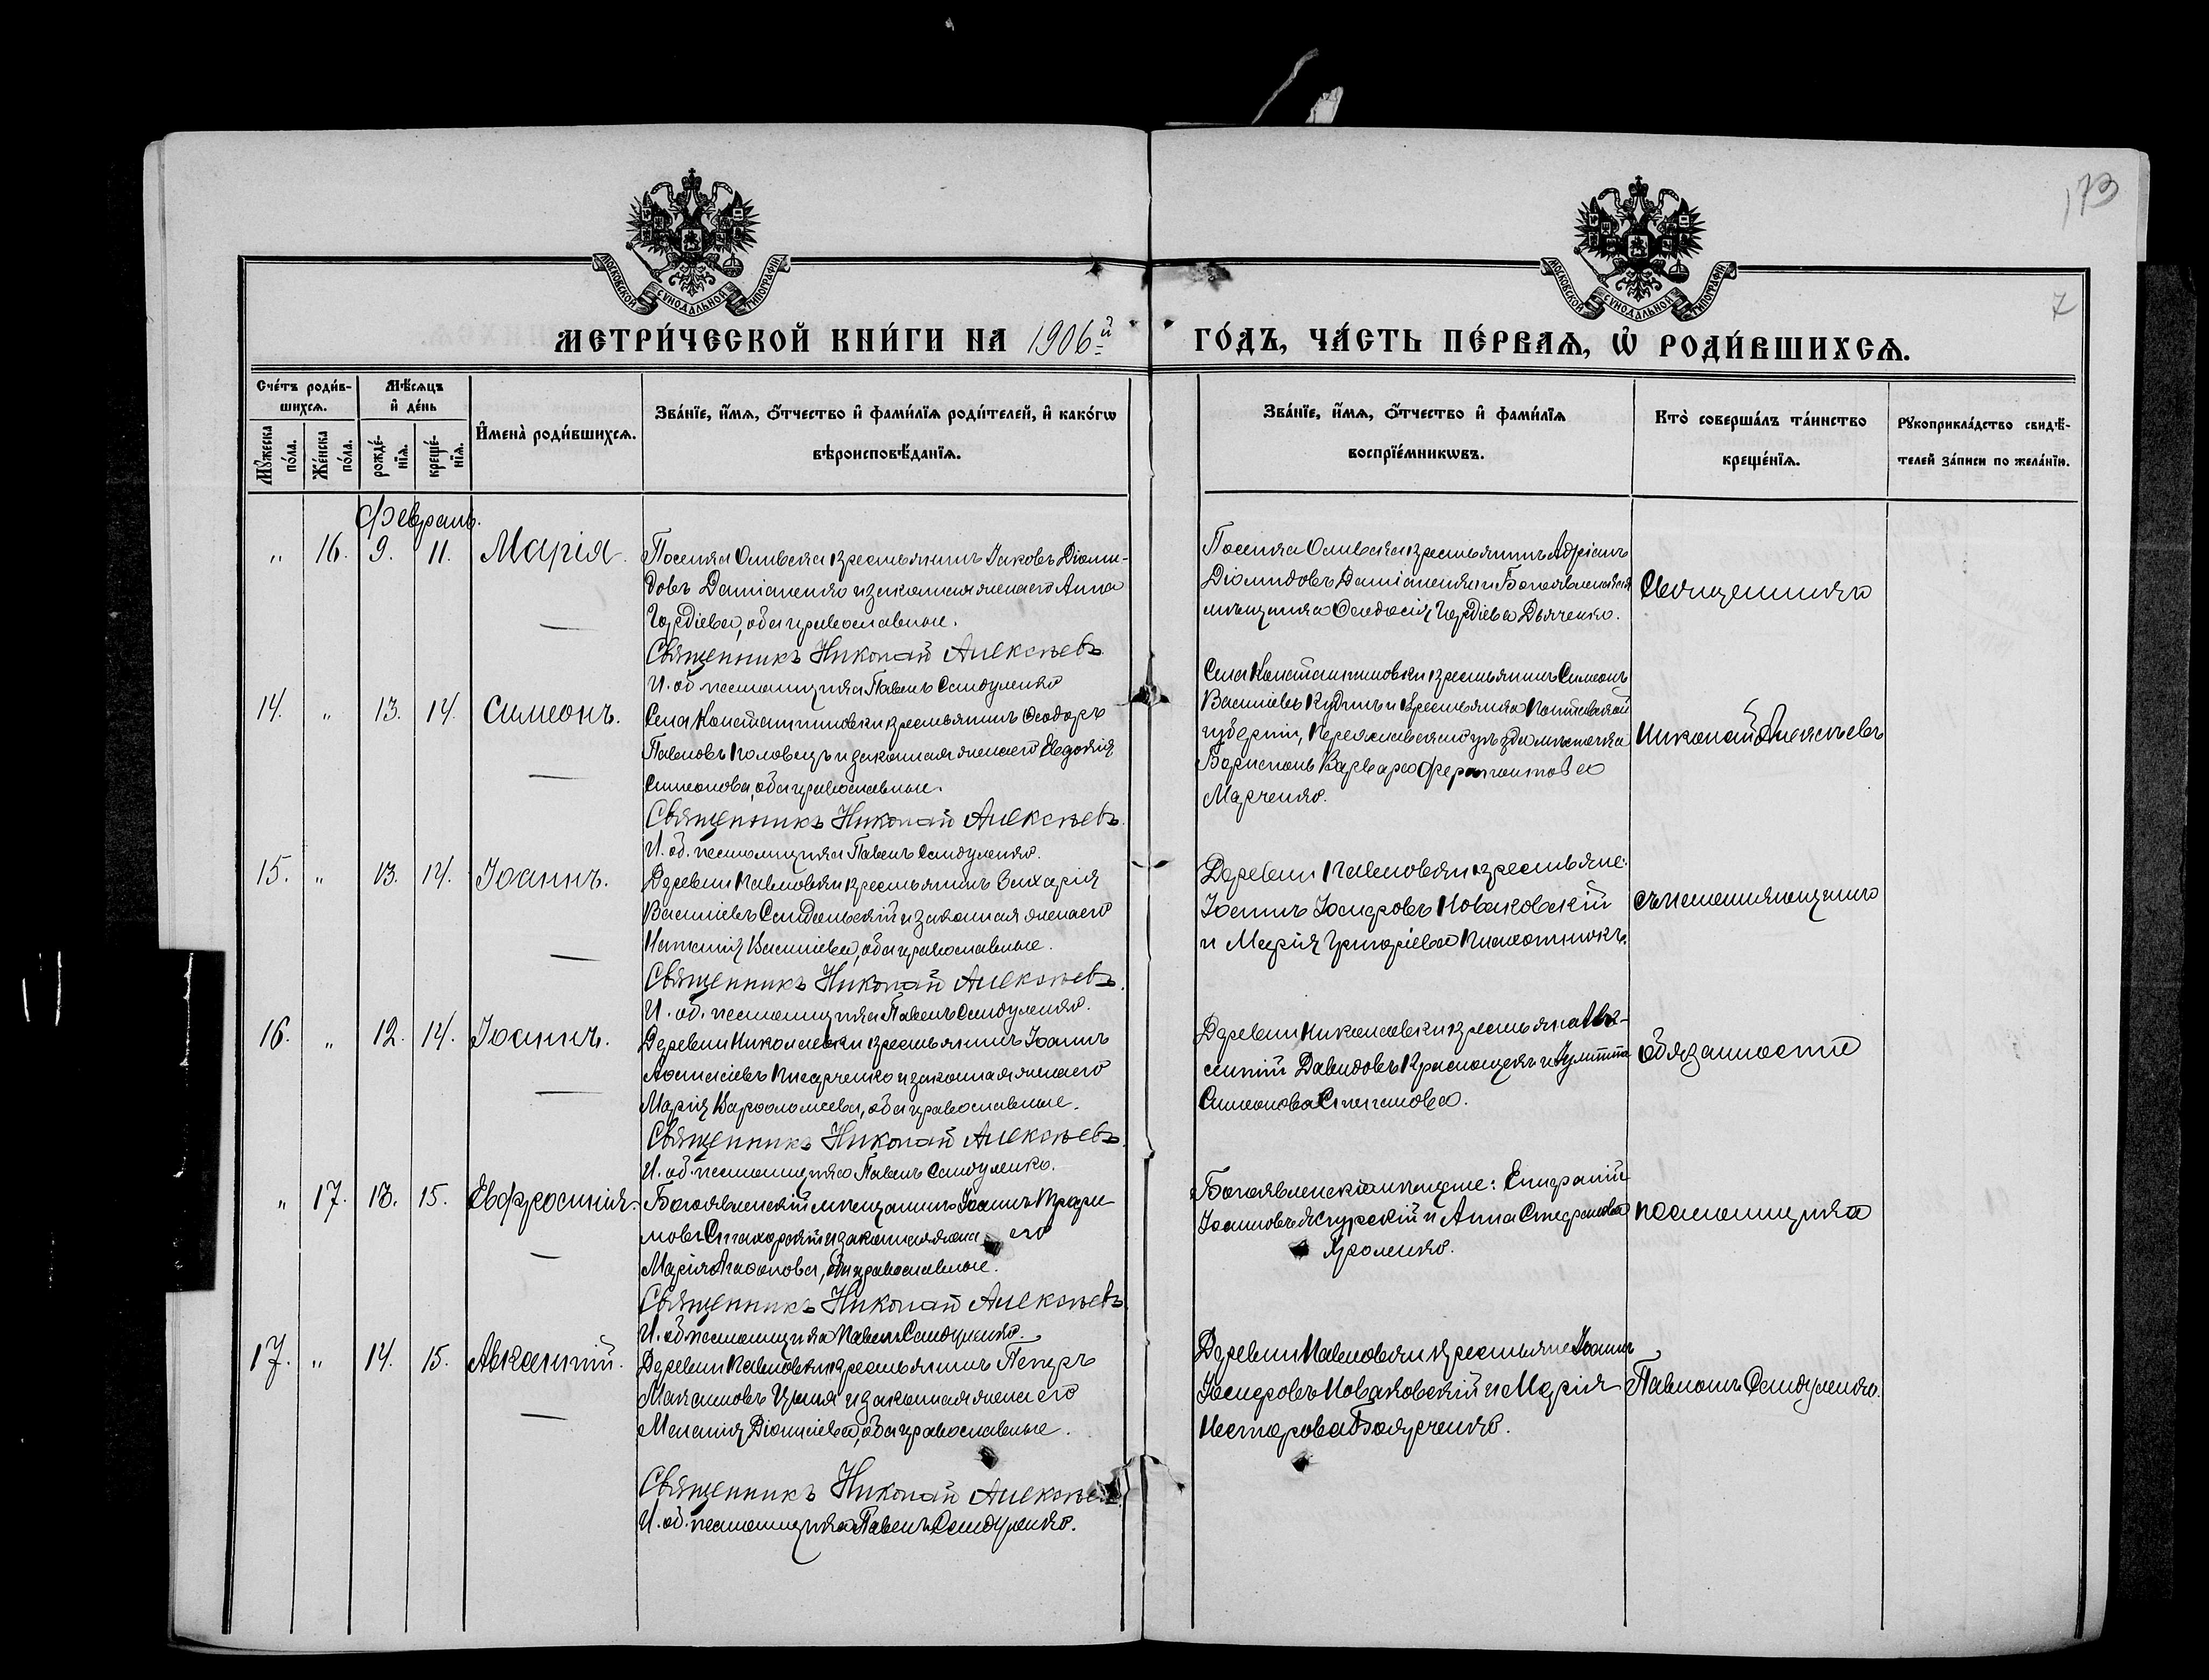 173
7
МОСКОВСКОЙ СѴНОДАЛЬНОЙ ТИПОГРАФІИ
МОСКОВСКОЙ СѴНОДАЛЬНОЙ ТИПОГРАФІИ
МЕТРИ́ЧЕСКОЙ КНИ́ГИ НА 1906й ГО́ДЪ, ЧА́СТЬ ПЕ́РВАѦ, Ѡ҆ РОДИ́ВШИХСѦ.
Сче́тъ роди́в-
шихсѧ.
Мѣ́сѧцъ
и҆ де́нь
Мꙋ́жеска по́ла.
Же́нска по́ла.
рожде́-
нїѧ.
креще́-
нїѧ.
И҆мена̀ роди́вшихсѧ.
Зва́нїе, и҆́мѧ, ѻ҆́тчество и҆ фами́лїѧ роди́телей, и҆ како́гѡ
вѣроисповѣ́данїѧ.
Зва́нїе, и҆́мѧ, ѻ҆́тчество и҆ фами́лїѧ
воспрїе́мникѡвъ.
Кто̀ соверша́лъ та́инство
креще́нїѧ.
Рꙋкоприкла́дство свидѣ́-
телей за́писи по жела́нїю.
Февраль.
„ 16. 9. 11. Марія.
Поселка Ольвска крестьянинъ Іаковъ Діоми-
довъ Даміаненко и законная жена его Анна
Гордіева, оба православные.
Священникъ Николай Алексѣевъ
И. об. псаломщика Павелъ Сандуленко
Поселка Ольвска крестьянинъ Адріанъ
Діомидовъ Даміаненко и Богоявленская
мѣщанка Ѳеодосія Гордіева Дьяченко.
Священникъ
14. „ 13. 14. Симеонъ.
Села Константиновки крестьянинъ Ѳеодоръ
Павловъ Половецъ и законная жена его Евдокія
Симеонова, оба православные.
Священникъ Николай Алексѣевъ.
И. об. псаломщика Павелъ Сандуленко.
Села Константиновки крестьянинъ Симеонъ
Василіевъ Кудинъ и крестьянка Полтавской
губерніи, Переяславскаго уѣзда мѣстечка
Борисполь Варвара Ферапонтова
Марченко.
Николай Алексѣевъ
15. „ 13. 14. Іоаннъ.
Деревни Павловки крестьянинъ Захарія
Василіевъ Сандальскій и законная жена его
Наталія Василіева, оба православные.
Священникъ Николай Алексѣевъ.
И. об. псаломщика Павелъ Сандуленко.
Деревни Павловки крестьяне:
Іоаннъ Іосифовъ Новаковскій
и Марія Григоріева Плахотнюкъ.
съ исполняющимъ
16. „ 12. 14. Іоаннъ.
Деревни Николаевки крестьянинъ Іоаннъ
Аѳанасіевъ Писарченко и законная жена его
Марія Варѳоломеева, оба православные.
Священникъ Николай Алексѣевъ.
И. об. псаломщика Павелъ Сандуленко.
Деревни Николаевки крестьяне
Давидовъ и Іулитта
Симеонова Степанова.
обязанности
„ 17. 13. 15. Евфросинія.
Богоявленскій мѣщанинъ Іоаннъ Трофи-
мовъ и законная жена его
Марія Агаѳонова, оба православные.
Священникъ Николай Алексѣевъ.
И. об. псаломщика Павелъ Сандуленко.
Богоявленскіе мѣщане: Епифаній
Іоанновъ и Анна Стефанова
Яроменко.
псаломщика
17. „ 14. 15. Авксентій.
Деревни Павловки крестьянинъ Петръ
Максимовъ и законная жена его
Меланія Діонисіева, оба православные.
Священникъ Николай Алексѣевъ.
И. об. псаломщика Павелъ Сандуленко.
Деревни Павловки крестьяне Іоаннъ
Іосифовъ Новаковскій и Марія
Несторова Боярченко.
Павломъ Сандуленко.